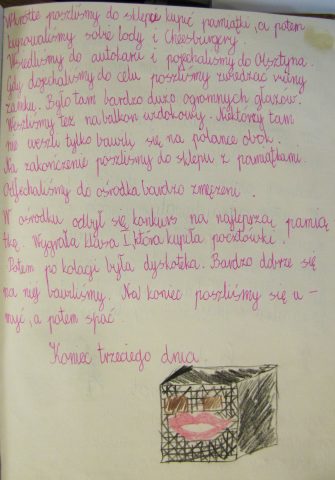 Wkrótce poszliśmy do sklepu kupić pamiątki, a potem
kupowaliśmy sobie lody i Cheesburgery.
Wsiedliśmy do autokaru i pojechaliśmy do Olsztyna.
Gdy dojechaliśmy do celu poszliśmy zwiedzać ruiny
zamku. Było tam bardzo dużo ogromnych głazów.
Weszliśmy też na balkon widokowy. Niektórzy tam
nie weszli tylko bawili się na polance obok.
Na zakończenie poszliśmy do sklepu z pamiątkami.
Odjechaliśmy do ośrodka bardzo zmęczeni.
W ośrodku odbył się konkurs na najlepszą pamią
tkę. Wygrała klasa I, która kupiła pocztówki.
Potem po kolacji była dyskoteka. Bardzo dobrze się
na niej bawiliśmy. Na koniec poszliśmy się u-
myć, a potem spać.
Koniec trzeciego dnia.